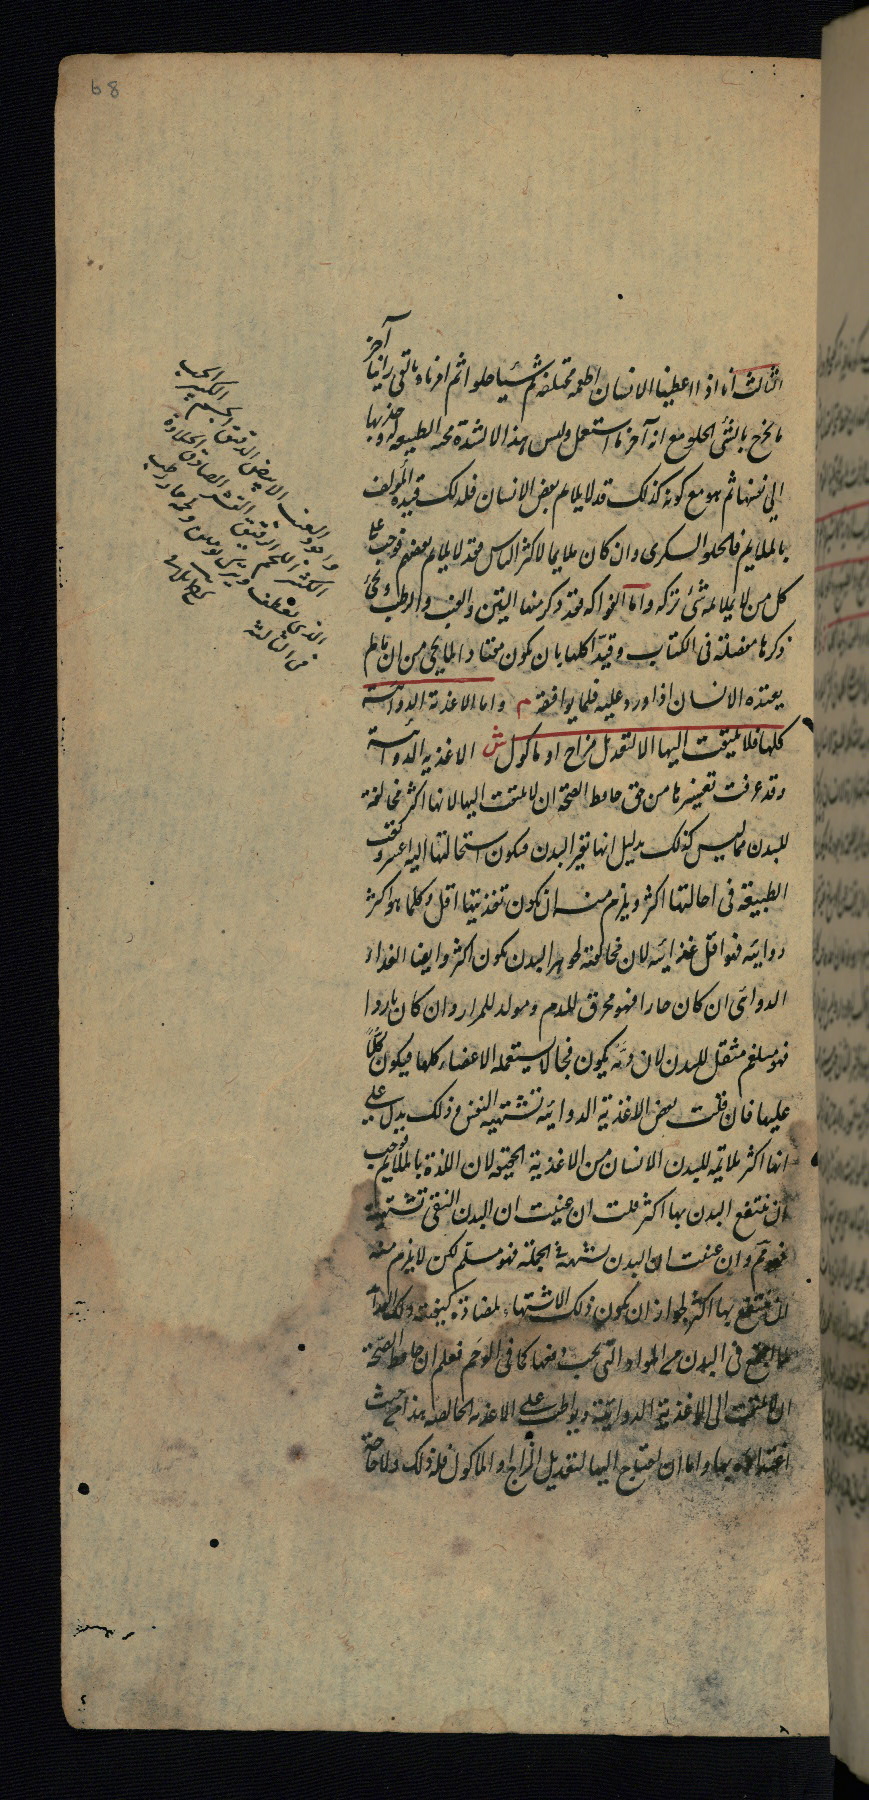 68
آخر
الثالث انا اذا اعطينا الانسان اطعمة مختلفة ثم شيأ حلوا ثم امرناه بالقى راينا
ما يخرج بالقى الحلو مع انه آخر ما استعمل وليس هذا الا لشدة محبة الطبيعة له وجذبها
الى نفسها ثم هو مع كونه كذلك قد لا يلايم بعض الانسان فلذلك قيده المؤلف
بالملايم فالحلو السكرى وان كان ملايما لاكثر الناس فقد لا يلايم بعضهم فوجب على
كل من لا يلايمه شئ تركه واما الفواكه فقد ذكر منها التين والعنب والرطب ويجئ
ذكرها مفصلة فى الكتاب وقيد اكلها بان يكون معتادا لما يجئ من ان ما لم
يعتده الانسان اذا ورد عليه قلما يوافقه م واما الاغذية الدوائية
كلها فلا يلتفت اليها الا لتعديل مزاج او ماكول ش الاغذية الدوائية
وقد عرفت تفسيرها من حق حافظ الصحة ان لا يلتفت اليها لانها اكثر مخالفة
للبدن مما ليس كذلك بدليل انها تغير البدن فيكون استحالتها اليه اعسر وتعب
الطبيعة فى احالتها اكثر ويلزم منه ان يكون تغذيتها اقل وكلما هو اكثر
دوائية فهو اقل غذائية لان مخالفته لجوهر البدن يكون اكثر وايضا الغذاء
الدوائى ان كان حارا فهو محرق للدم ومولد للمرار وان كان باردا
فهو مبلغم مثقل للبدن لان دمه يكون فجا لا يستعمله الاعضاء كلها فيكون كلا
عليها فان قلت بعض الاغذية الدوائية تشتهيه النفس وذلك يدل على
انها اكثر ملائمة للبدن الانسان من الاغذية الحقيقة لان اللذة بالملايم فوجب
ان ينتفع البدن بها اكثر قلت ان عنيت ان البدن النقى تشتهيه
فهو مم وان عنيت ان البدن تشتهيه فى الجملة فهو مسلم لكن لا يلزم منه
ان ينتفع بها اكثر لجواز ان يكون ذلك الاشتهاء لمضادة كيفية ذلك الغذاء
لما اجتمع فى البدن من المواد التى يجب دفعها كما فى الوحم فعلم ان حافظ الصحة
ان لا يلتفت الى الاغذية الدوائية ويواظب على الاغذية الخالصة هذا من حيث
اغتذاؤه بها واما ان احتاج اليها لتعديل المزاج او الماكول فله ذلك
واجود العنب الابيض الرقيق الجسم الكبير الحب
الكثير اللحم الرقيق القشر الصادق الحلاوة
الذى يقطف ويترك يومين